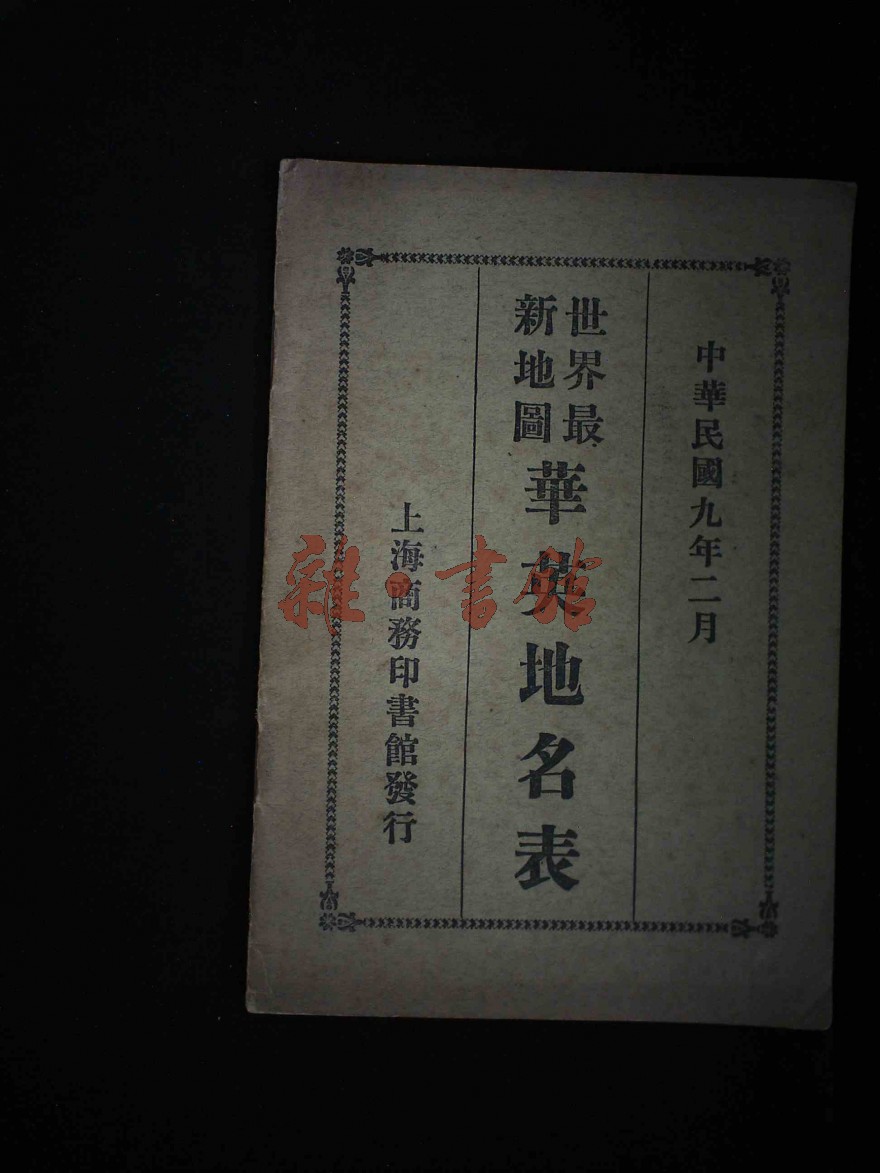 中華民國九年二月
世界最
新地圖
華英地名表
上海商務印書館發行
雜·書館